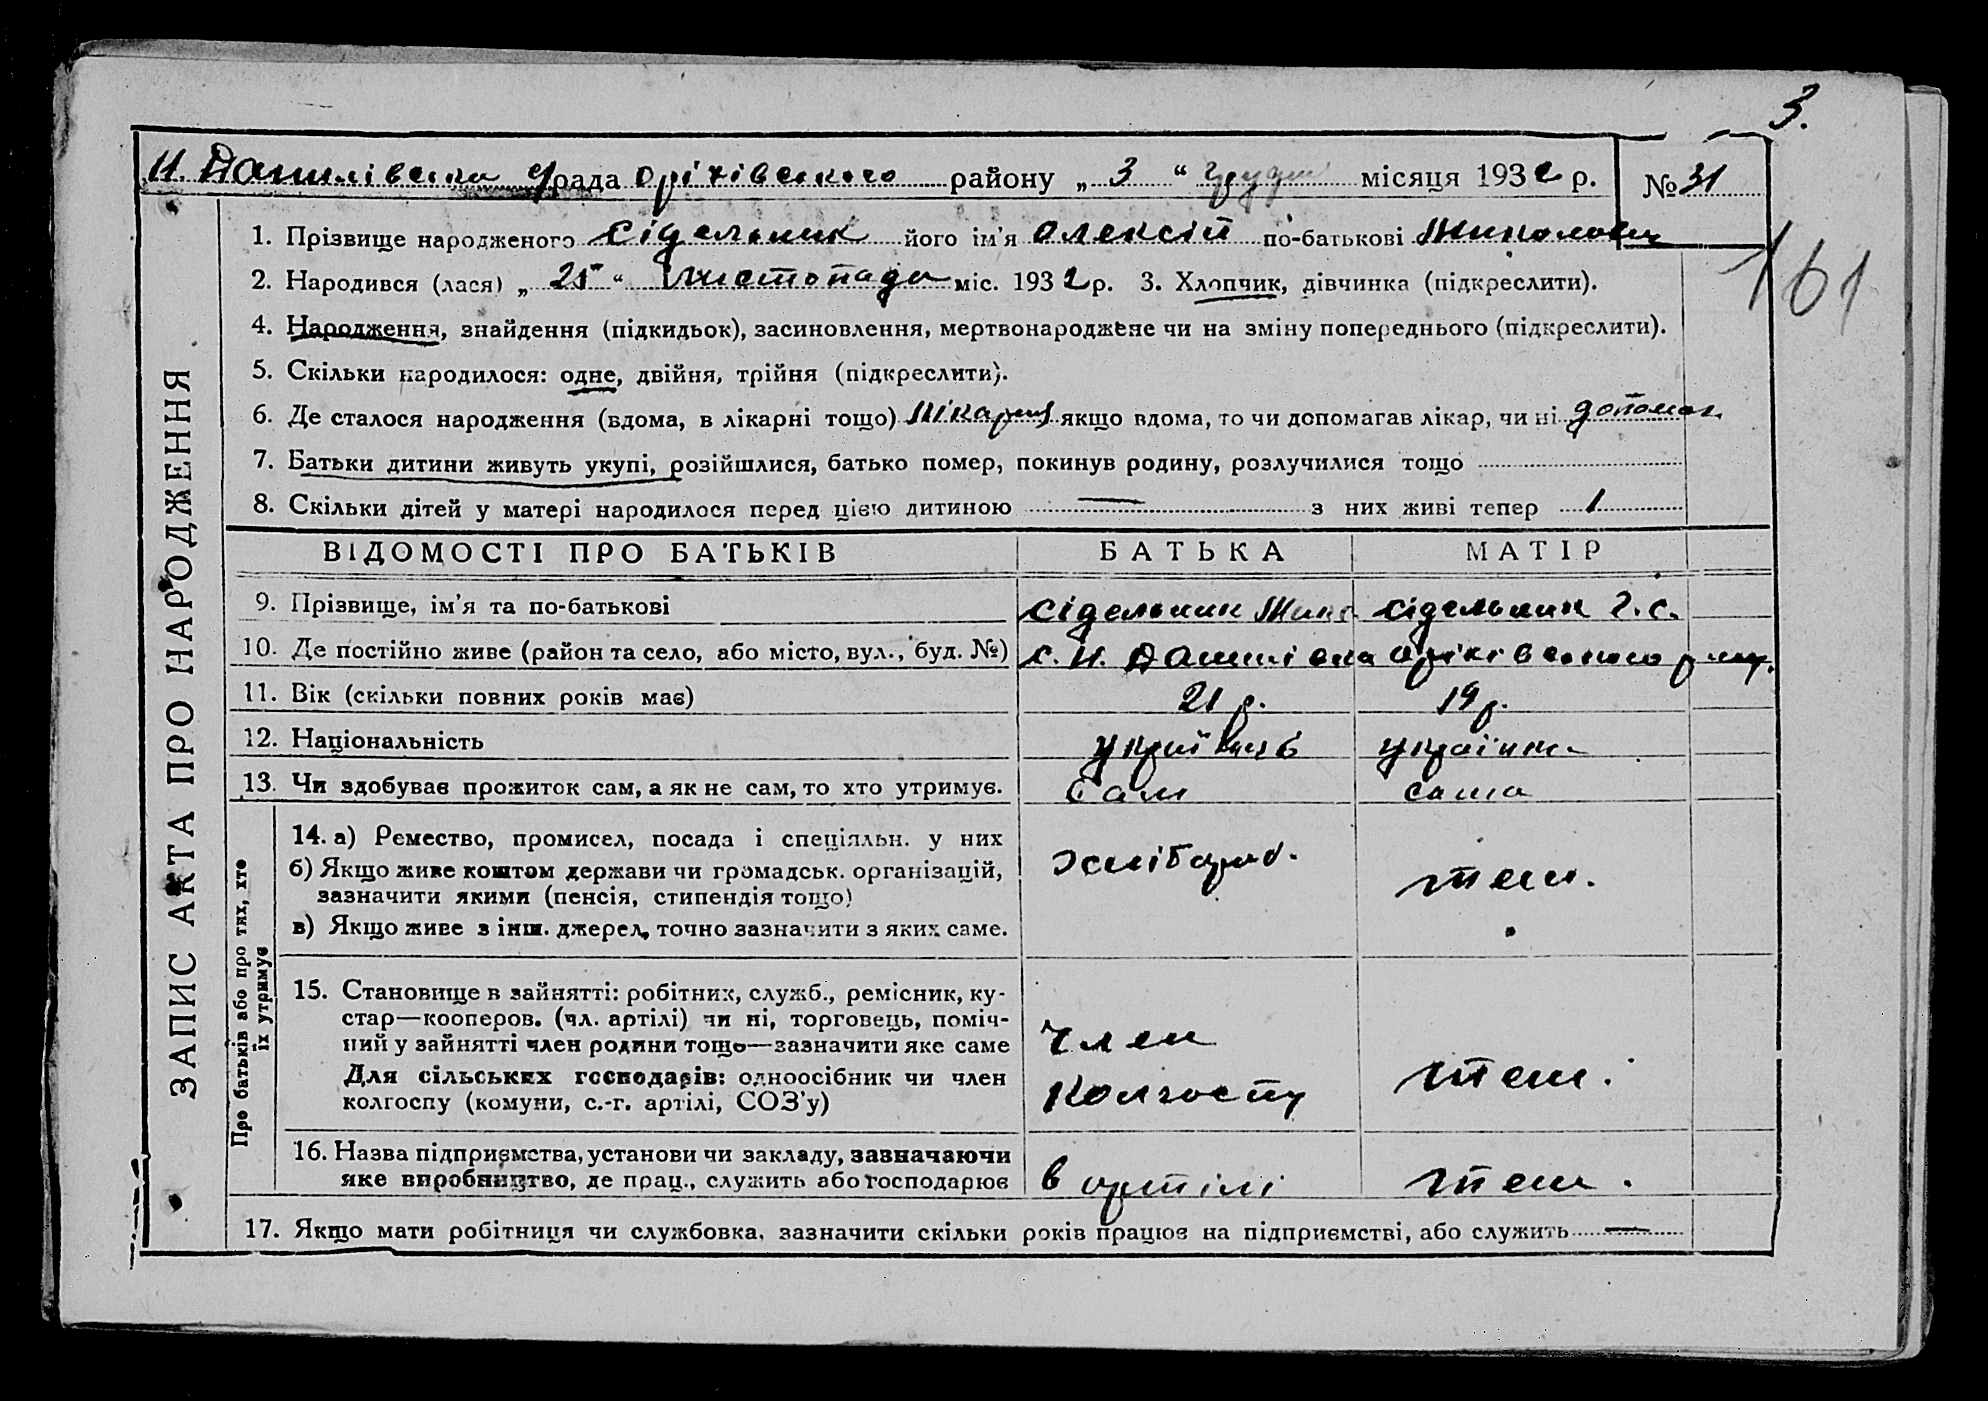 3.
Н. Дашківська с/рада Оріхівського району „ 3 “ грудня місяця 1932 р. № 31
1. Прізвище народженого Сідельник його ім’я Олексій по-батькові Миколович
161
2. Народився (лася) „ 25 “ листопада міс. 1932 р. 3. Хлопчик, дівчинка (підкреслити).
4. Народження, знайдення (підкидьок), засиновлення, мертвонароджене чи на зміну попереднього (підкреслити).
5. Скільки народилося: одне, двійня, трійня (підкреслити).
6. Де сталося народження (вдома, в лікарні тощо) лікарня якщо вдома, то чи допомагав лікар, чи ні допомог
7. Батьки дитини живуть укупі, розійшлися, батько помер, покинув родину, розлучилися тощо
8. Скільки дітей у матері народилося перед цією дитиною — з них живі тепер 1
ЗАПИС АКТА ПРО НАРОДЖЕННЯ
ВІДОМОСТІ ПРО БАТЬКІВ БАТЬКА МАТІР
9. Прізвище, ім’я та по-батькові Сідельник Мик. Сідельник Г. С.
10. Де постійно живе (район та село, або місто, вул., буд. №) с. Н. Дашківка Оріхівського
11. Вік (скільки повних років має) 21 р. 19 р.
12. Національність українець українка
13. Чи здобуває прожиток сам, а як не сам, то хто утримує. Сам сама
Про батьків або про тих, хто їх утримує
14. а) Ремество, промисел, посада і спеціяльн. у них хлібороб. теж.
б) Якщо живе коштом держави чи громадськ. організацій,
зазначити якими (пенсія, стипендія тощо)
в) Якщо живе з інш. джерел, точно зазначити з яких саме.
15. Становище в зайнятті: робітник, служб., ремісник, ку-
стар—кооперов. (чл. артілі) чи ні, торговець, поміч-
ний у зайнятті член родини тощо—зазначити яке саме член
Для сільських господарів: одноосібник чи член теж.
колгоспу (комуни, с.-г. артілі, СОЗ’у) колгоспу
16. Назва підприємства, установи чи закладу, зазначаючи
яке виробництво, де прац., служить або господарює в артілі теж.
17. Якщо мати робітниця чи службовка, зазначити скільки років працює на підприємстві, або служить —